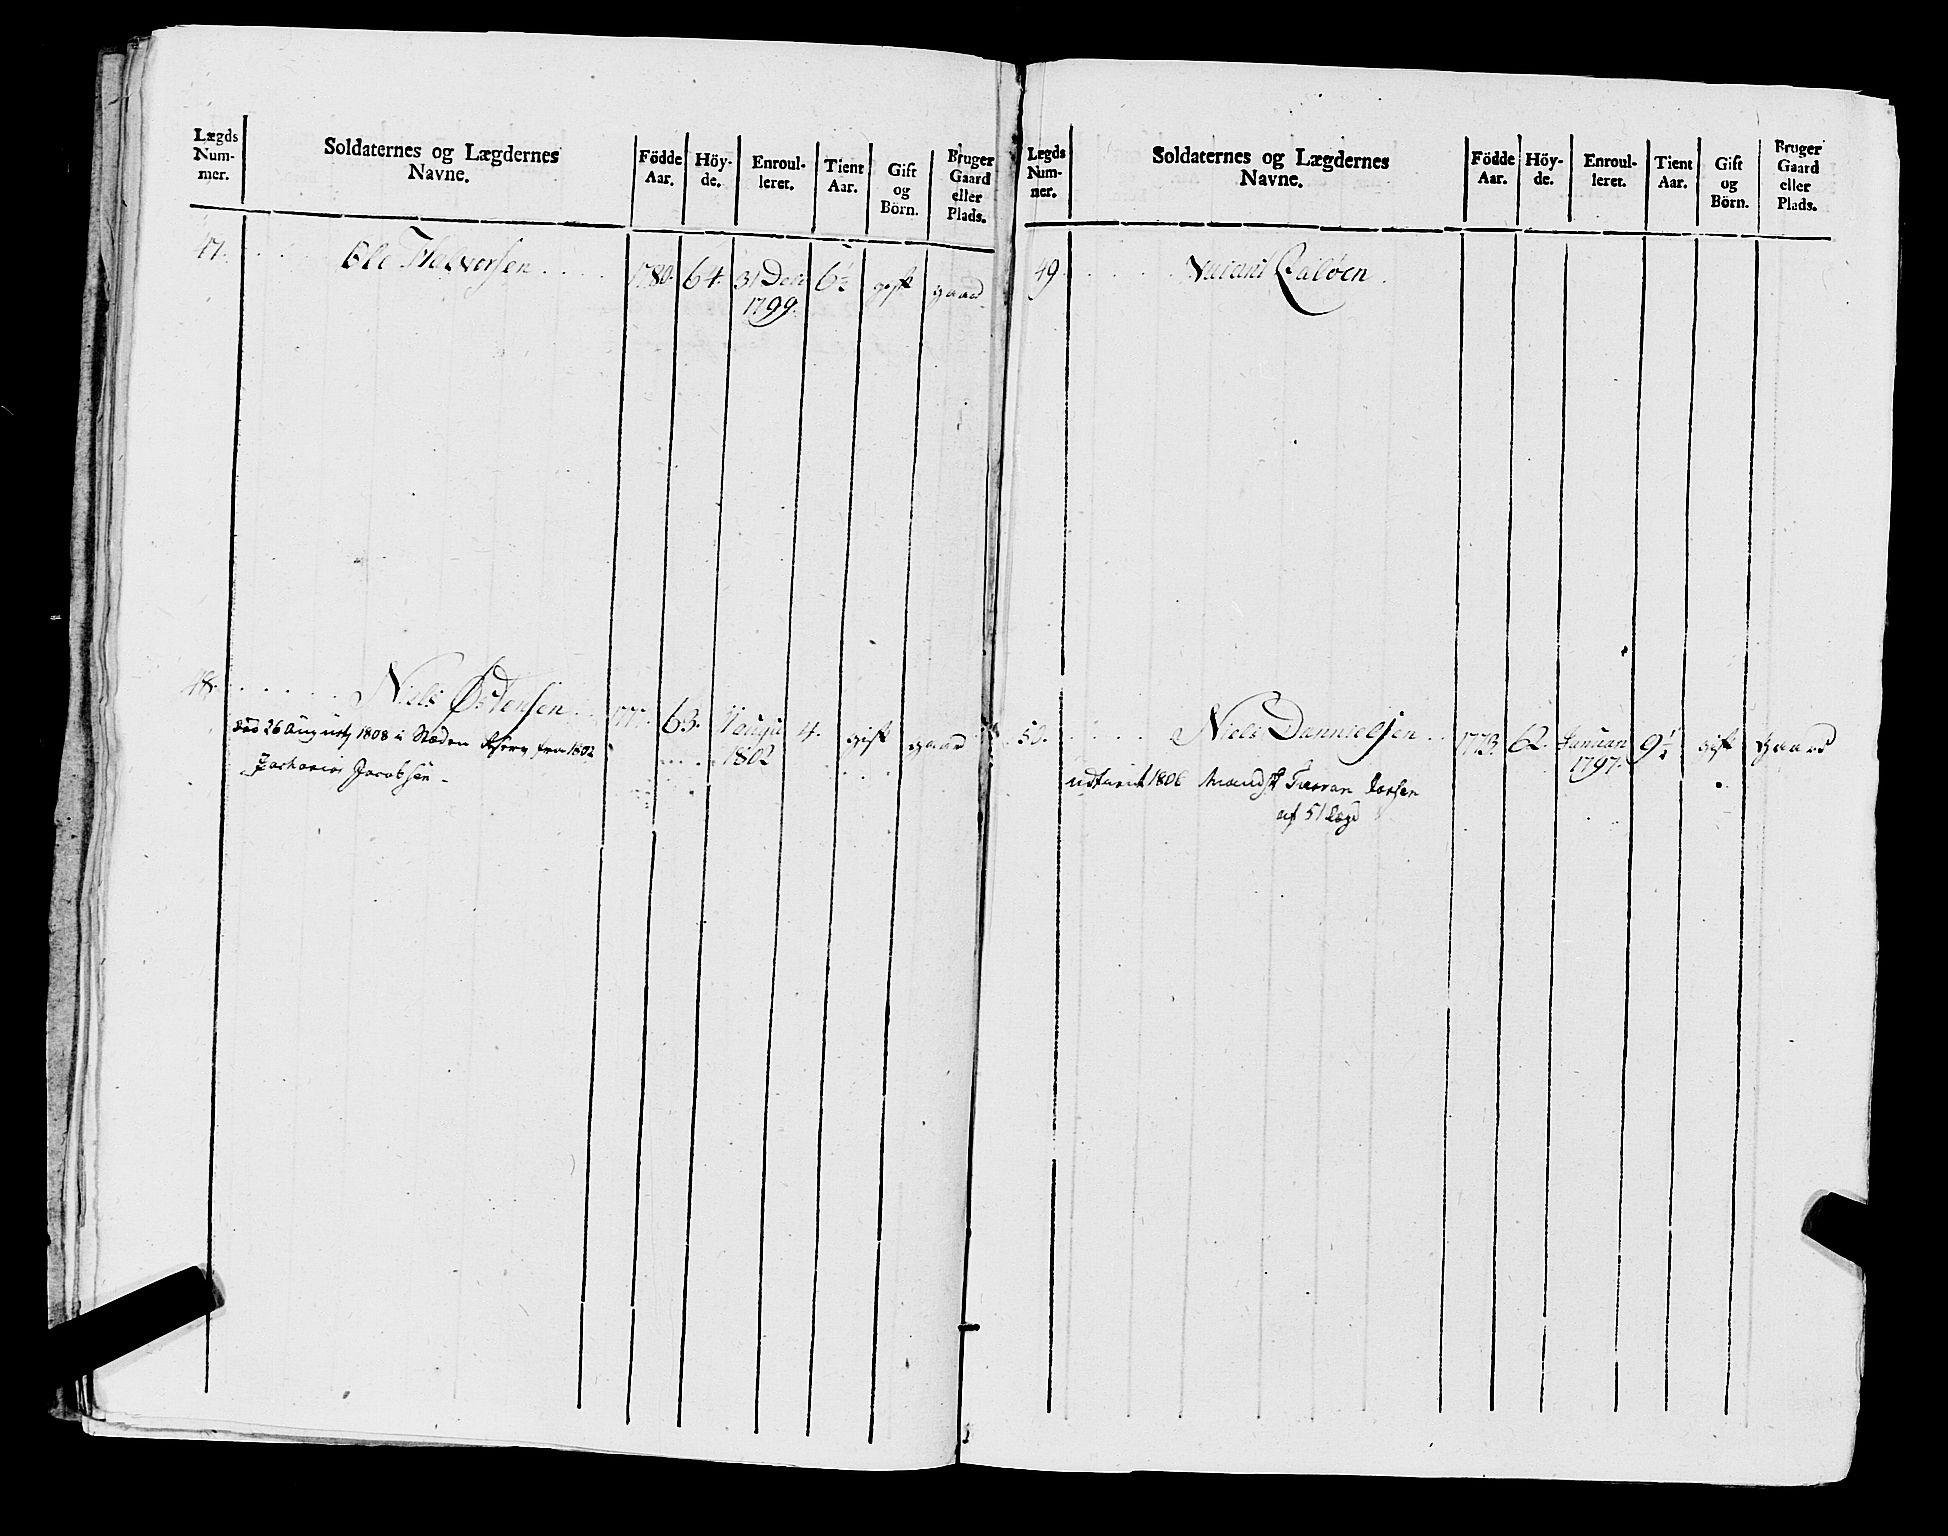 Lægds
Num-
mer.
Soldaternes og Lægdernes
Navne.
Födde
Aar.
Höy-
de.
Enroul-
leret.
Tient
Aar.
Gift
og
Börn.
Bruger
Gaard
eller
Plads.
47. Ole Halvorsen 1780. 64. 31 Decb 6½ gift gaard
1799.
48. Niels Østensen 177 63. 4. gift gaard
1802
død 26 August 1808 i Stæden Reserv fra 1802
Zacharias Jacobsen
Lægds
Num-
mer.
Soldaternes og Lægdernes
Navne.
Födde
Aar.
Höy-
de.
Enroul-
leret.
Tient
Aar.
Gift
og
Börn.
Bruger
Gaard
eller
Plads.
49 Vacant
50. Niels Dannielsen 1773. 62. Januari 9½ gift gaard
1797.
udtient 1806 Mandsk
af 51 Lægd